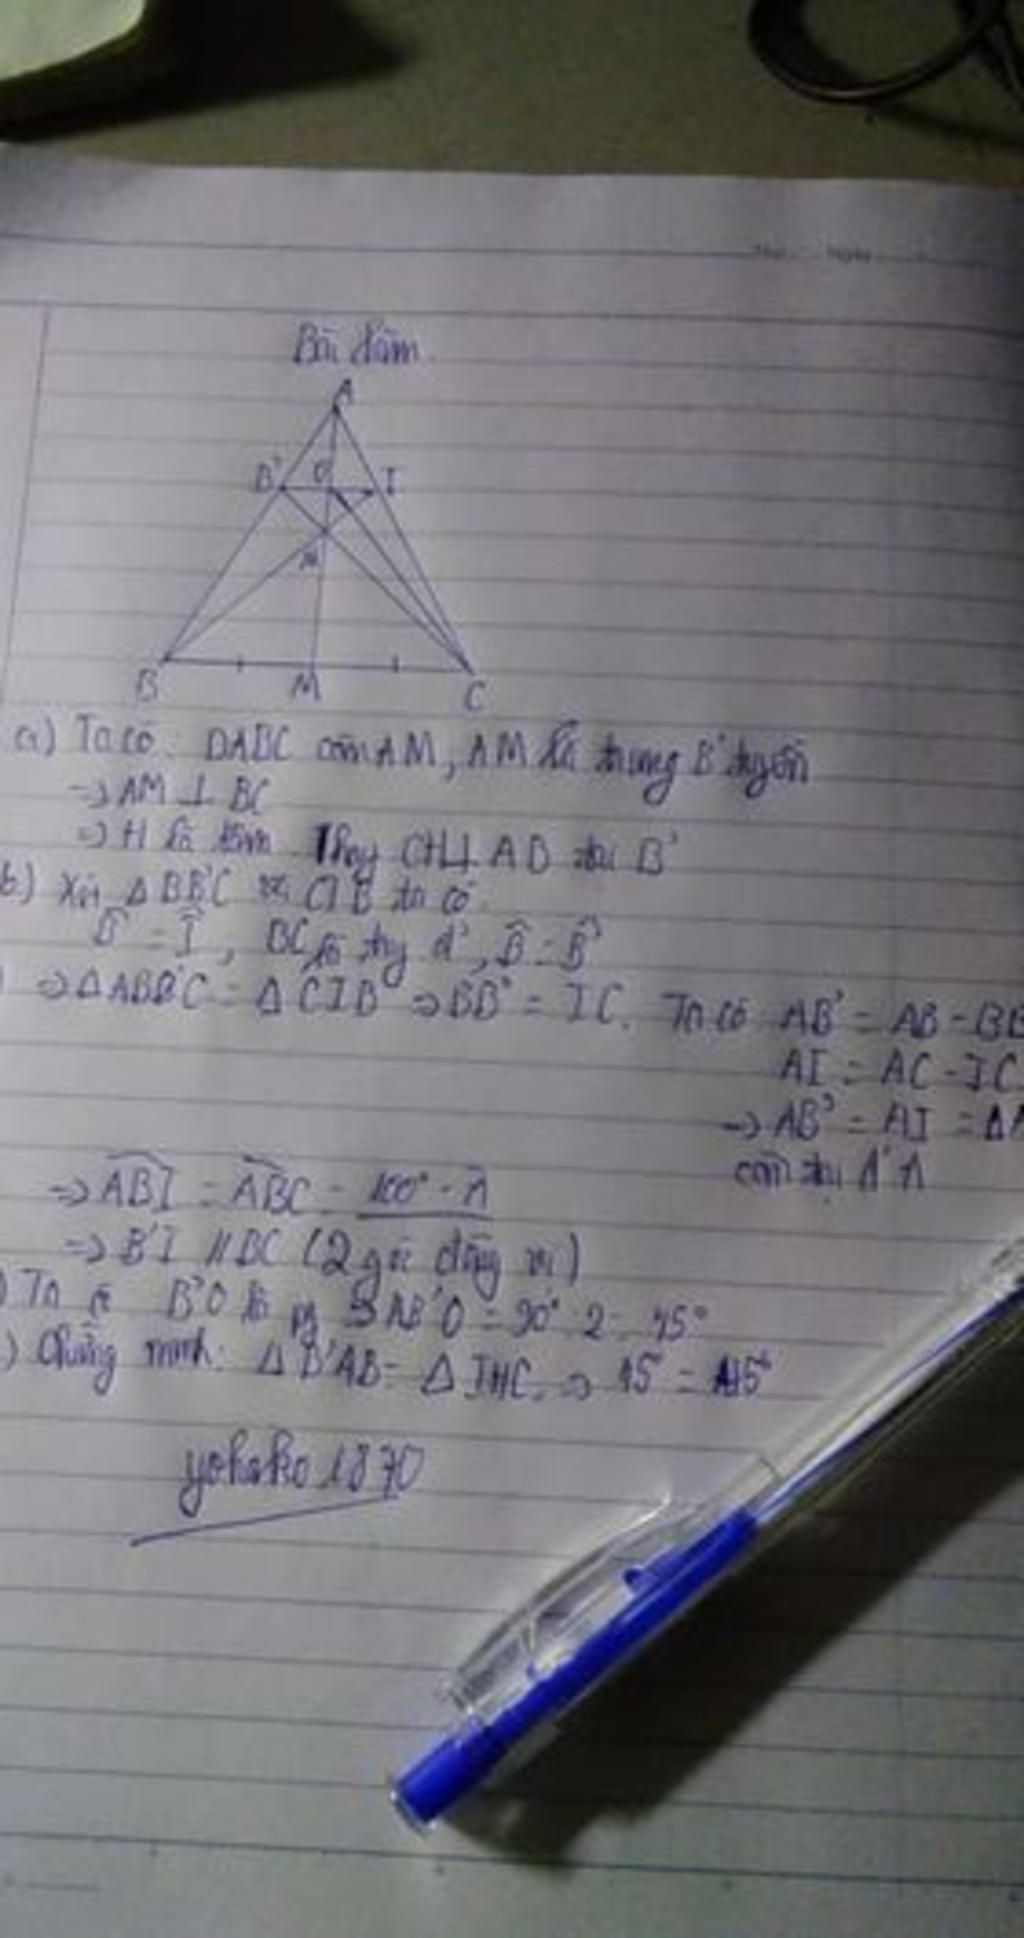 Bài làm
A
B' O I
H
B M C
a) Ta có: ΔABC cân AM, AM là trung B' tuyến
=> AM ⊥ BC
=> H là tâm Thay CH ⊥ AB tại B'
b) Xét Δ BB'C và CIB ta có
B' = I, BC là, B = B'
=> Δ ABB'C = Δ CIB => BB' = IC. Ta có AB' = AB - BB
AI = AC - IC
=> AB' = AI = ΔA
cân tại A' A
=> ABI = ABC = 100° - A
=> B'I // BC (2 góc đồng vị)
) Ta có B'O là pg => AB'O = 90° : 2 = 45°
) Chứng minh: Δ B'AB = Δ IHC. => 45° = 45°
yohako 1870